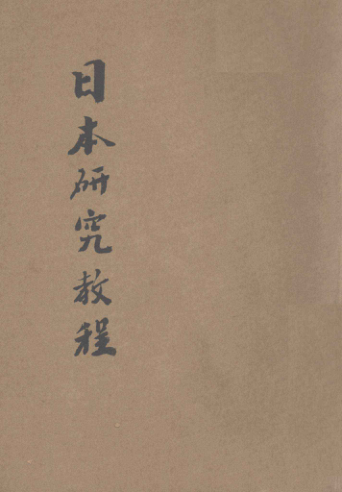 日本研究教程